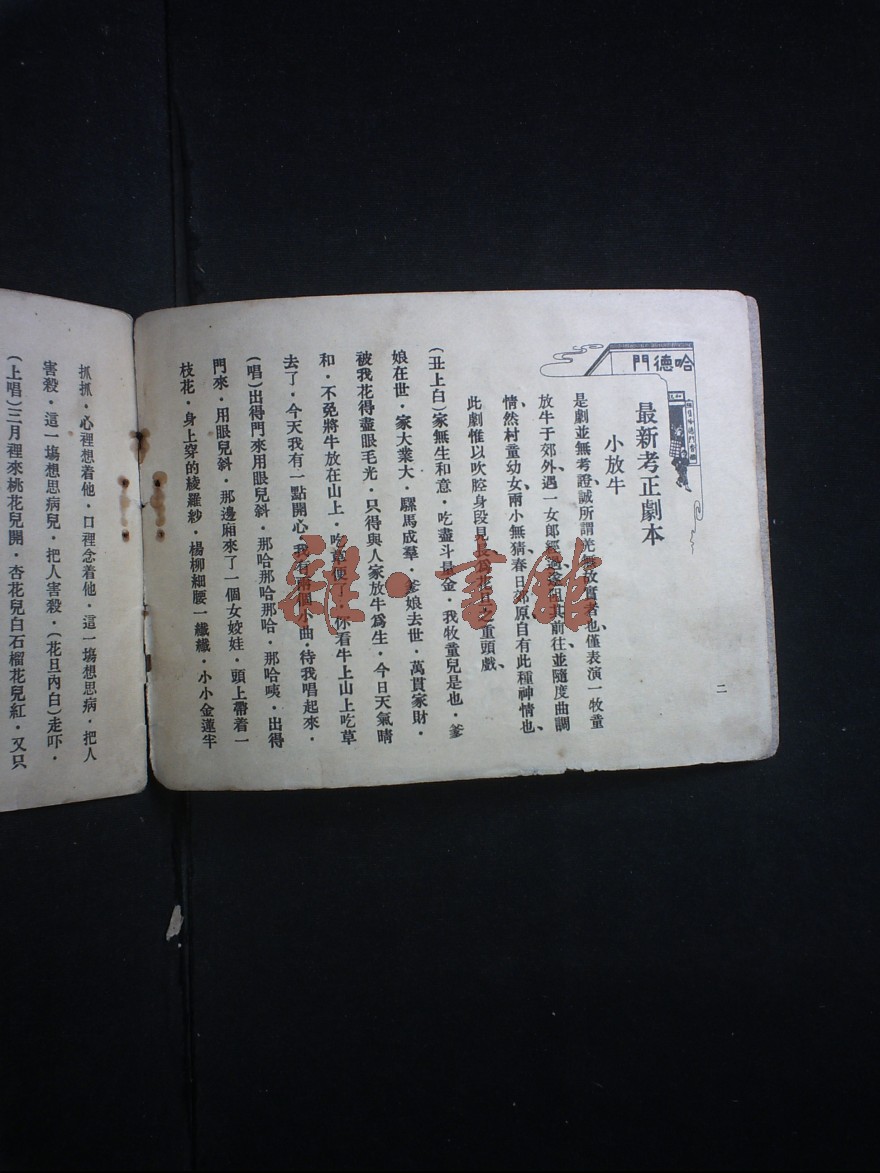 哈德門
最新考正劇本
小放牛
是劇並無考證、誠所謂光
也、僅表演一牧童
放牛于郊外、遇一女郎經過、
其前往並隨度曲調
情然村童幼女、兩小無猜春日郊原自有此種神情也、
此劇惟以吹腔身段見長、爲花旦之重頭戲、
(丑上白)家無生和意・吃盡斗量金・我牧童兒是也・爹
娘在世・家大業大・騾馬成羣・爹娘去世・萬貫家財・
被我花得盡眼毛光・只得與人家放牛爲生・今日天氣晴
和・不免將牛放在山上・吃草便了・你看牛上山上吃草
去了・今天我有一點開心・我有兩個小曲・待我唱起來・
(唱)出得門來用眼兒斜・那哈哈那哈・那哈咦・出得
門來・用眼兒斜・那邊廂來了一個女姣娃・頭上帶着一
枝花・身上穿的綾羅紗・楊柳細腰一纖纖・小小金蓮半
二
抓抓・心裡想着他・口裡念着他・這一塲想思病・把人
害殺・這一塲想思病兒・把人害殺・(花旦內白)走吓・
(上唱)三月裡來桃花兒開・杏花兒白石榴花兒紅・又只
雜·書館